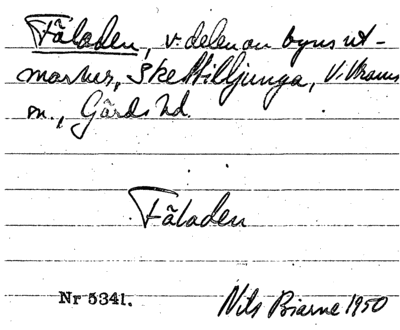 Fäladen, v. delen av byns ut-
marker, Skettilljunga, V. Vrams
sn., Gärds hd.
Fäladen
Nr 5341. Nils Biarne 1950